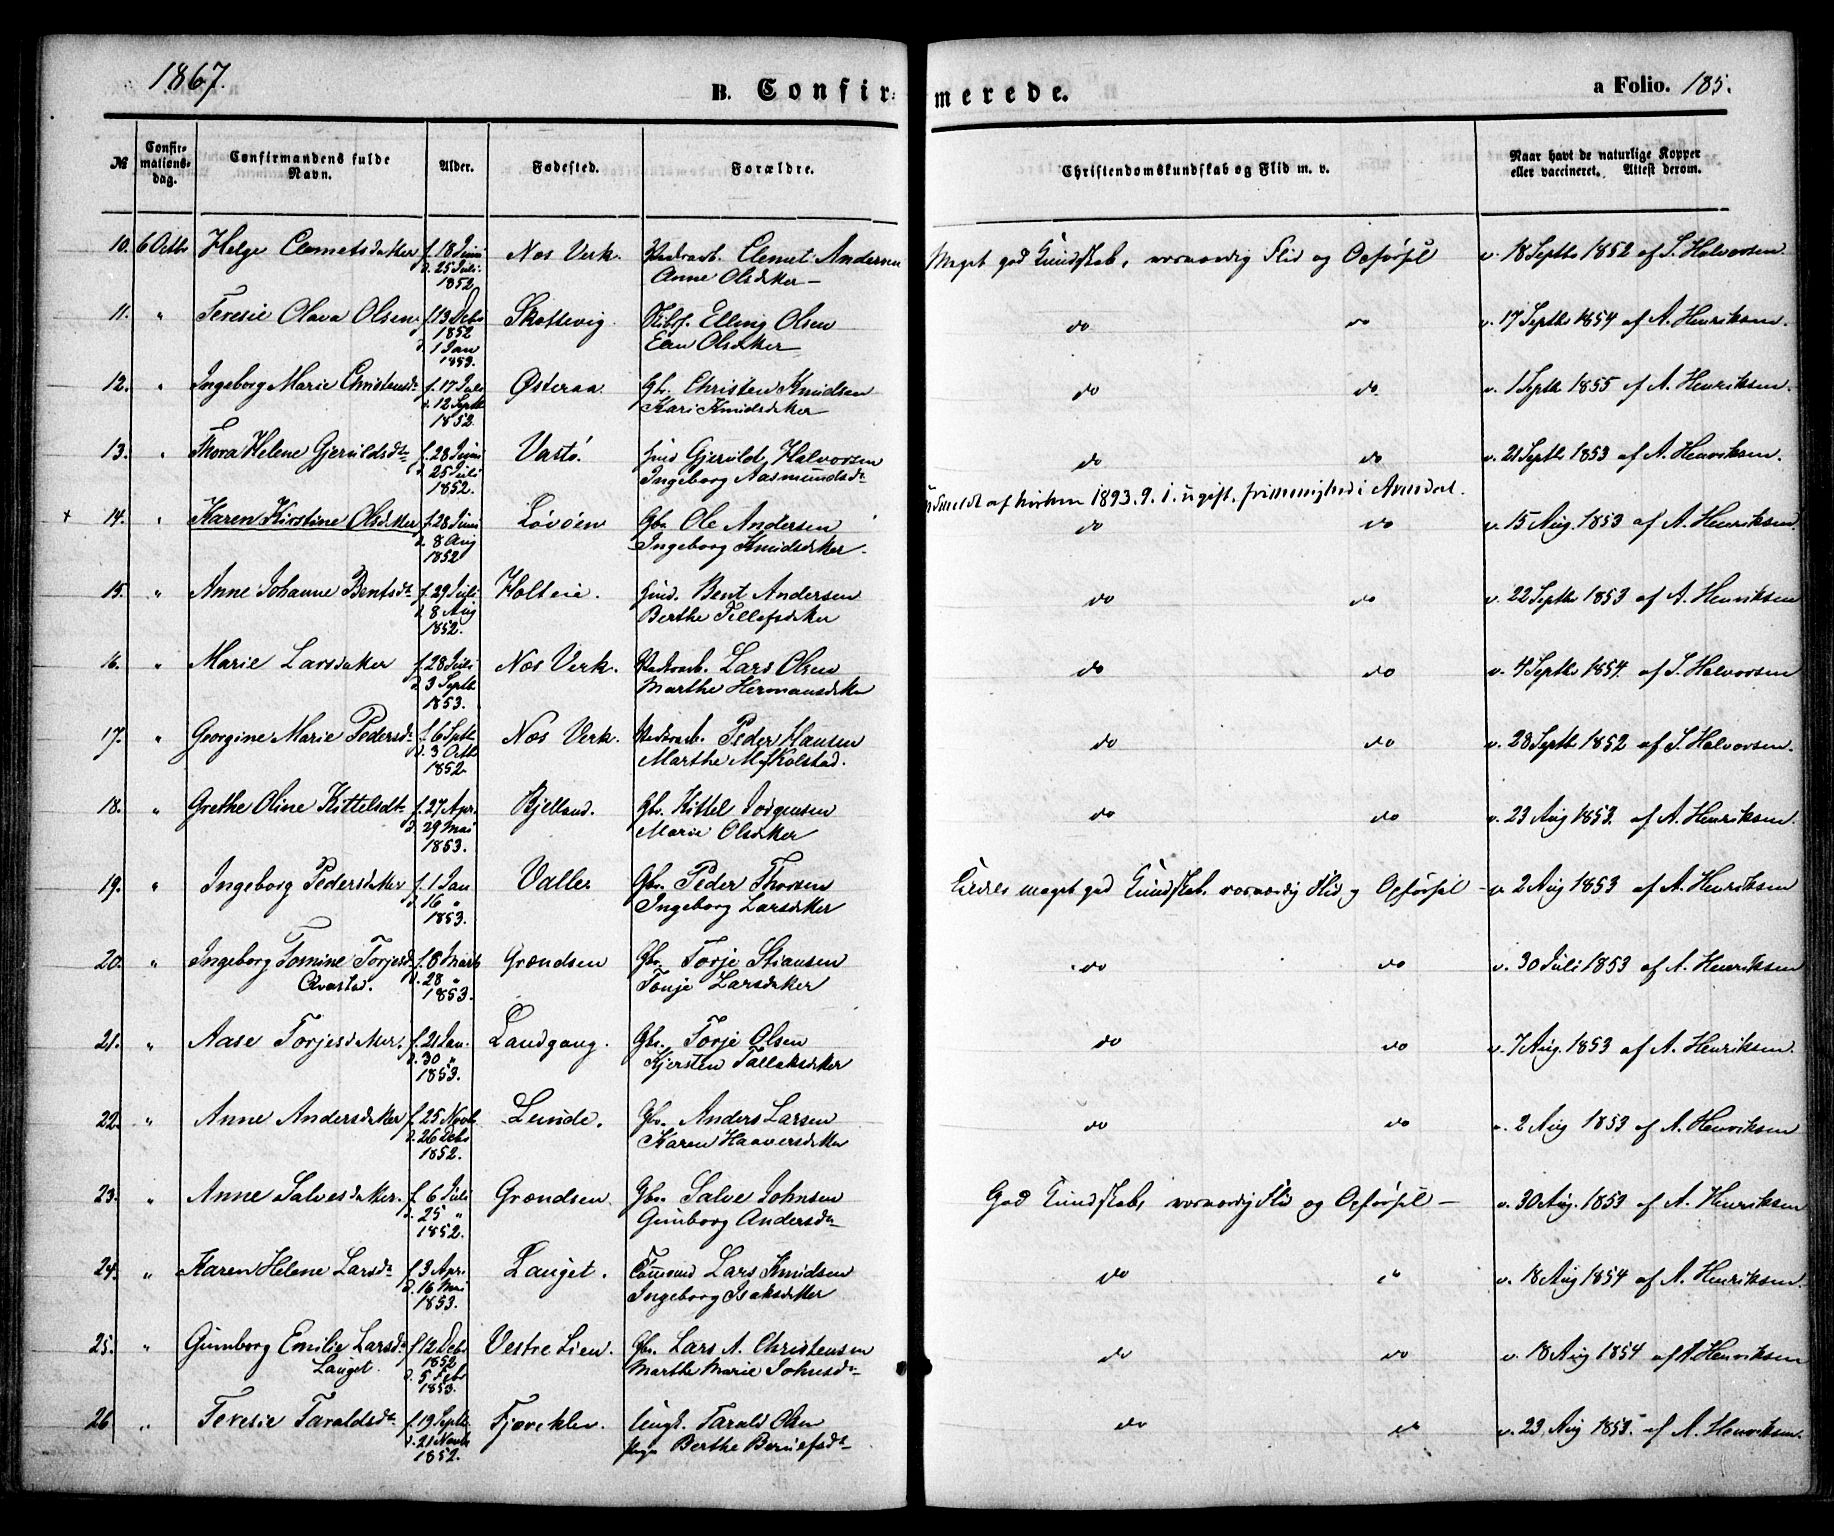 1867.
B. Confirmerede.
a Folio. 185.
№ Confirmationsdag. Confirmandens fulde Navn. Alder. Fødested. Forældre. Christendomskundskab og Flid m. v. Naar havt de naturlige Kopper eller vaccineret. Attest derom.
10. 6 Octbr Helge Clemetsdatter f. 18 Juni d. 25 Juli 1852. Nes Verk. Clemet Andersen
Anne Olsdatter — Meget god Kundskab, Flid og Opførsel v. 18 Septbr 1852 af S. Halvorsen.
11. " Teresie Olava Olsen f. 13 Debr 1852 d. 1 Jan 1853. Skottevig. Elling Olsen
Olsdatter — do do v. 17 Septbr 1854 af A. Henriksen.
12. " Ingeborg Marie Christensdr f. 17 Juli d. 12 Septbr 1852. Østeraa. Gbr. Christen Knudsen
Kari Knudsdatter do do v. 1 Septbr 1855 af A. Henriksen.
13. " Thora Helene Gjeruldsdtr f. 28 Juni d. 25 Juli 1852. Vastø. Gjeruld Halvorsen
Ingeborg Aasmundsdtr do do v. 21 Septbr 1853 af A. Henriksen.
Udmeldt af kirken 1893. 9. 1. ugift, frimenighed i Arendal.
+ 14. " Karen Kirstine Olsdatter f. 28 Juni d. 8 Aug 1852 Løvøen Gbr. Ole Andersen
Ingeborg Knudsdatter. do do v. 15 Aug. 1853 af A. Henriksen.
15. " Anne Johanne Bentsdtr f. 29 Juli d. 8 Aug 1852. Holteie. Bent Andersen
Berthe Tellefsdatter do do v. 22 Septbr 1853 af A. Henriksen
16. " Marie Larsdatter f. 28 Juli d. 3 Septbr 1853. Nes Verk. Lars Olsen
Marthe Hermansdatter do do v. 4 Septbr 1854. af S. Halvorsen
17. " Georgine Marie Pedersdr f. 6 Sptbr d. 3 Octbr 1852. Nes Verk. Peder Hansen
Marthe M. Kolstad. do do v. 28 Septbr 1852 af S. Halvorsen.
18. " Grethe Oline Kittelsdtr f. 27 Apr. d. 29 Mai 1853. Kjelland. Gbr. Kittel Jørgensen
Marie Olsdatter do do v. 23 Aug 1853. af A. Henriksen.
19. " Ingeborg Pedersdatter f. 1 Jan d. 16 " 1853. Valle Gbr. Peder Thorsen
Ingeborg Larsdatter meget god Kundskab, Flid og Opførsel v. 2 Aug 1853 af A. Henriksen
20. " Ingeborg Tomine Torjesdr f. 8 Marts d. 28 " 1853. Grændsen Gbr. Torje Stiansen
Tonje Larsdatter do do v. 30 Juli 1853 af A. Henriksen
21. " Aase Torjesdatter. f. 21 Jan. d. 30 " 1853. Landgang. Gbr. Torje Olsen
Kjersten Tallaksdatter do do v. 7 Aug. 1853 af A. Henriksen.
22. " Anne Andersdatter f. 25 Novb. d. 26 Debr 1852. Lunde. Gbr. Anders Larsen
Karen Haaversdatter do do v. 2 Aug 1853 af A. Henriksen
23. " Anne Salvesdatter. f. 6 Juli d. 25 " 1852. Grændsen. Gbr. Salve Johnsen
Gunborg Andersdtr God Kundskab, Flid og Opførsel — v. 30 Aug. 1853 af A. Henriksen
24. " Karen Helene Larsdr f. 3 Apr. d. 16 Mai 1853. Lauget. Lars Knudsen
Ingeborg Isaksdatter do do v. 18 Aug 1854 af A. Henriksen.
25. " Gunborg Emilie Larsdr
Lauget. f. 12 Debr 1852 d. 5 Febr 1853. Vestre Lien. Gbr. Lars A. Christensen
Marthe Marie Johnsdtr do do v. 18 Aug 1854 af A. Henriksen
26. " Teresie Taraldsdtr f. 19 Septbr. d. 21 Novbr 1852. Fjæreklev. Ungk. Tarald Olsen
Pige Berthe do do v. 23. Aug 1853. af A. Henriksen.